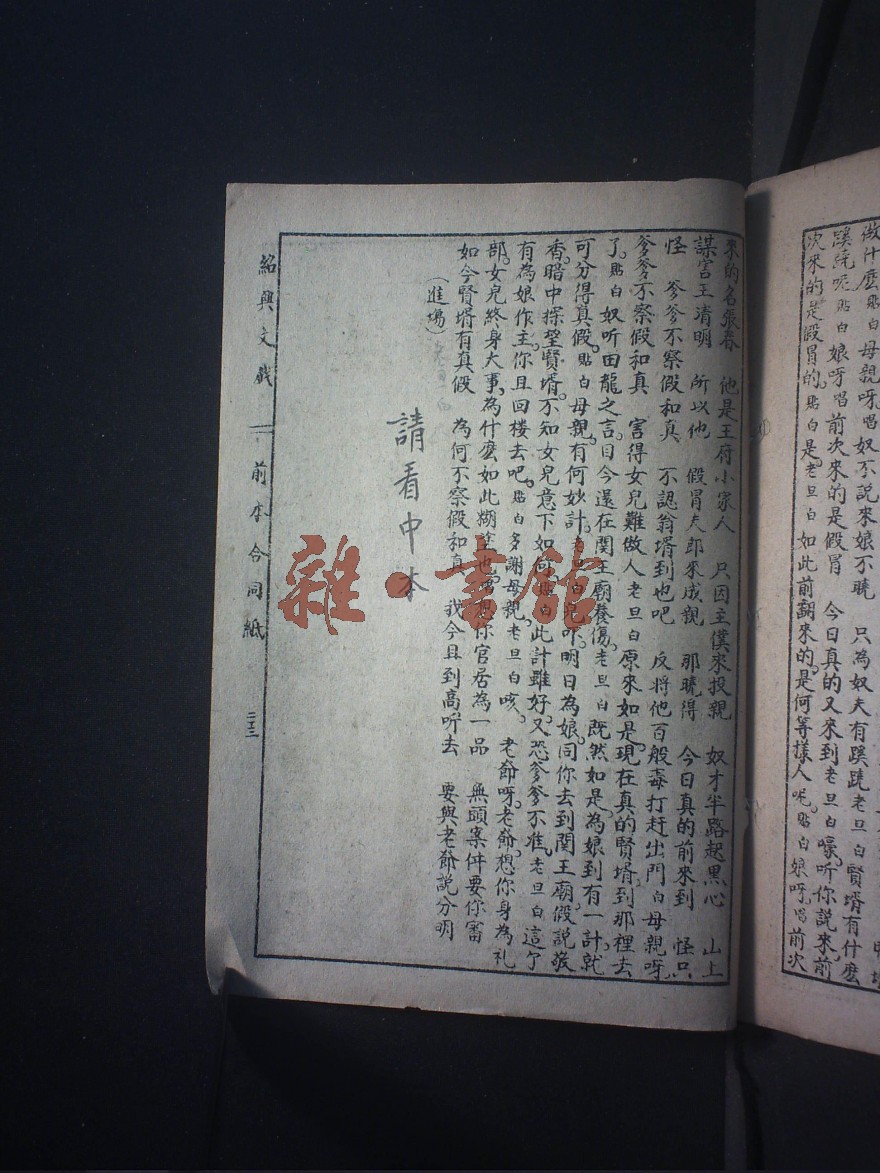 做什麽貼白母親呀唱奴不説來娘不曉　只為奴夫有蹊蹺老旦白賢壻有什麽
蹊蹺呢貼白娘呀唱前次來的是假冒　今日真的又來到老旦白嚎听你説來前
次來的是假冒的貼白是老旦白如此前翻來的是何等樣人呢貼白娘呀唱前次
來的名張春　他是王府小家人　只因主僕來投親　奴才半路起黑心　山上
謀害王清明　所以他　假冒夫郎來成親　那曉得　今日真的前來到　怪只
怪　爹爹不察假和真　不認翁壻到也吧　反將他百般毒打赶出門白母親呀
爹爹不察假和真　害得女兒難做人老旦白原來如是現在真的賢壻到那裡去
了貼白奴听田龍之言目今還在関王廟養傷老旦白既然如是為娘到有一計就
可分得真假貼白母親有何妙計老旦白兒吓明日為娘同你去到関王廟假説敬
香暗中探望賢壻不知女兒意下如何貼白此計雖好又恐爹爹不准老旦白這个
有為娘作主你且回楼去吧貼白多謝母親老旦白咳　老爺呀老爺想你身為礼
部女兒終身大事為什麽如此糊塗也唱想你官居為一品　無頭案件要你審
如今賢壻有真假　為何不察假和真　我今且到高听去　要與老爺説分明
（進場）
請看中本
紹興文戲　前本合同紙　二三
雜·書館